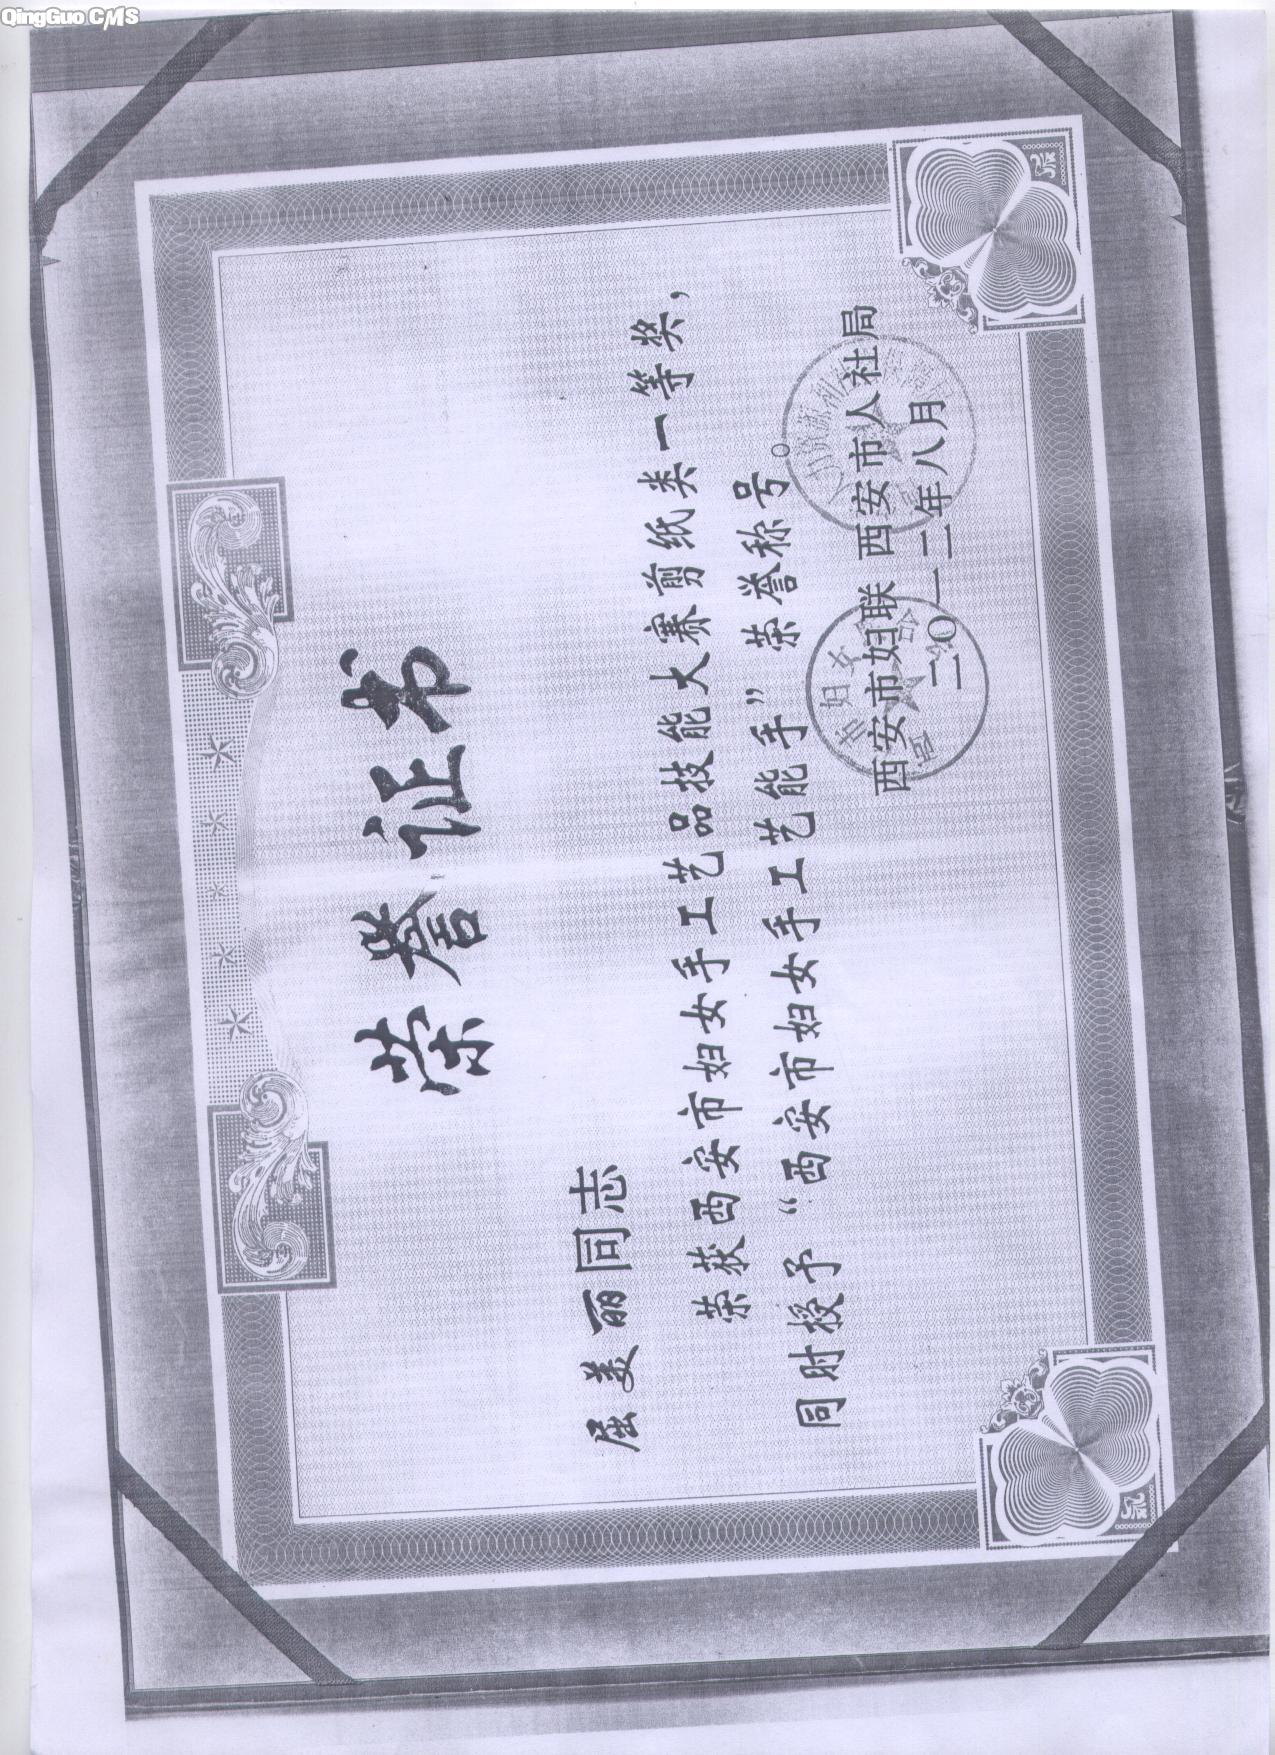 QingGuo CMS
荣誉证书
屈美丽同志
荣获西安市妇女手工艺品技能大赛剪纸类一等奖，
同时授予“西安市妇女手工艺能手”荣誉称号。
西安市妇联 西安市人社局
二〇一二年八月